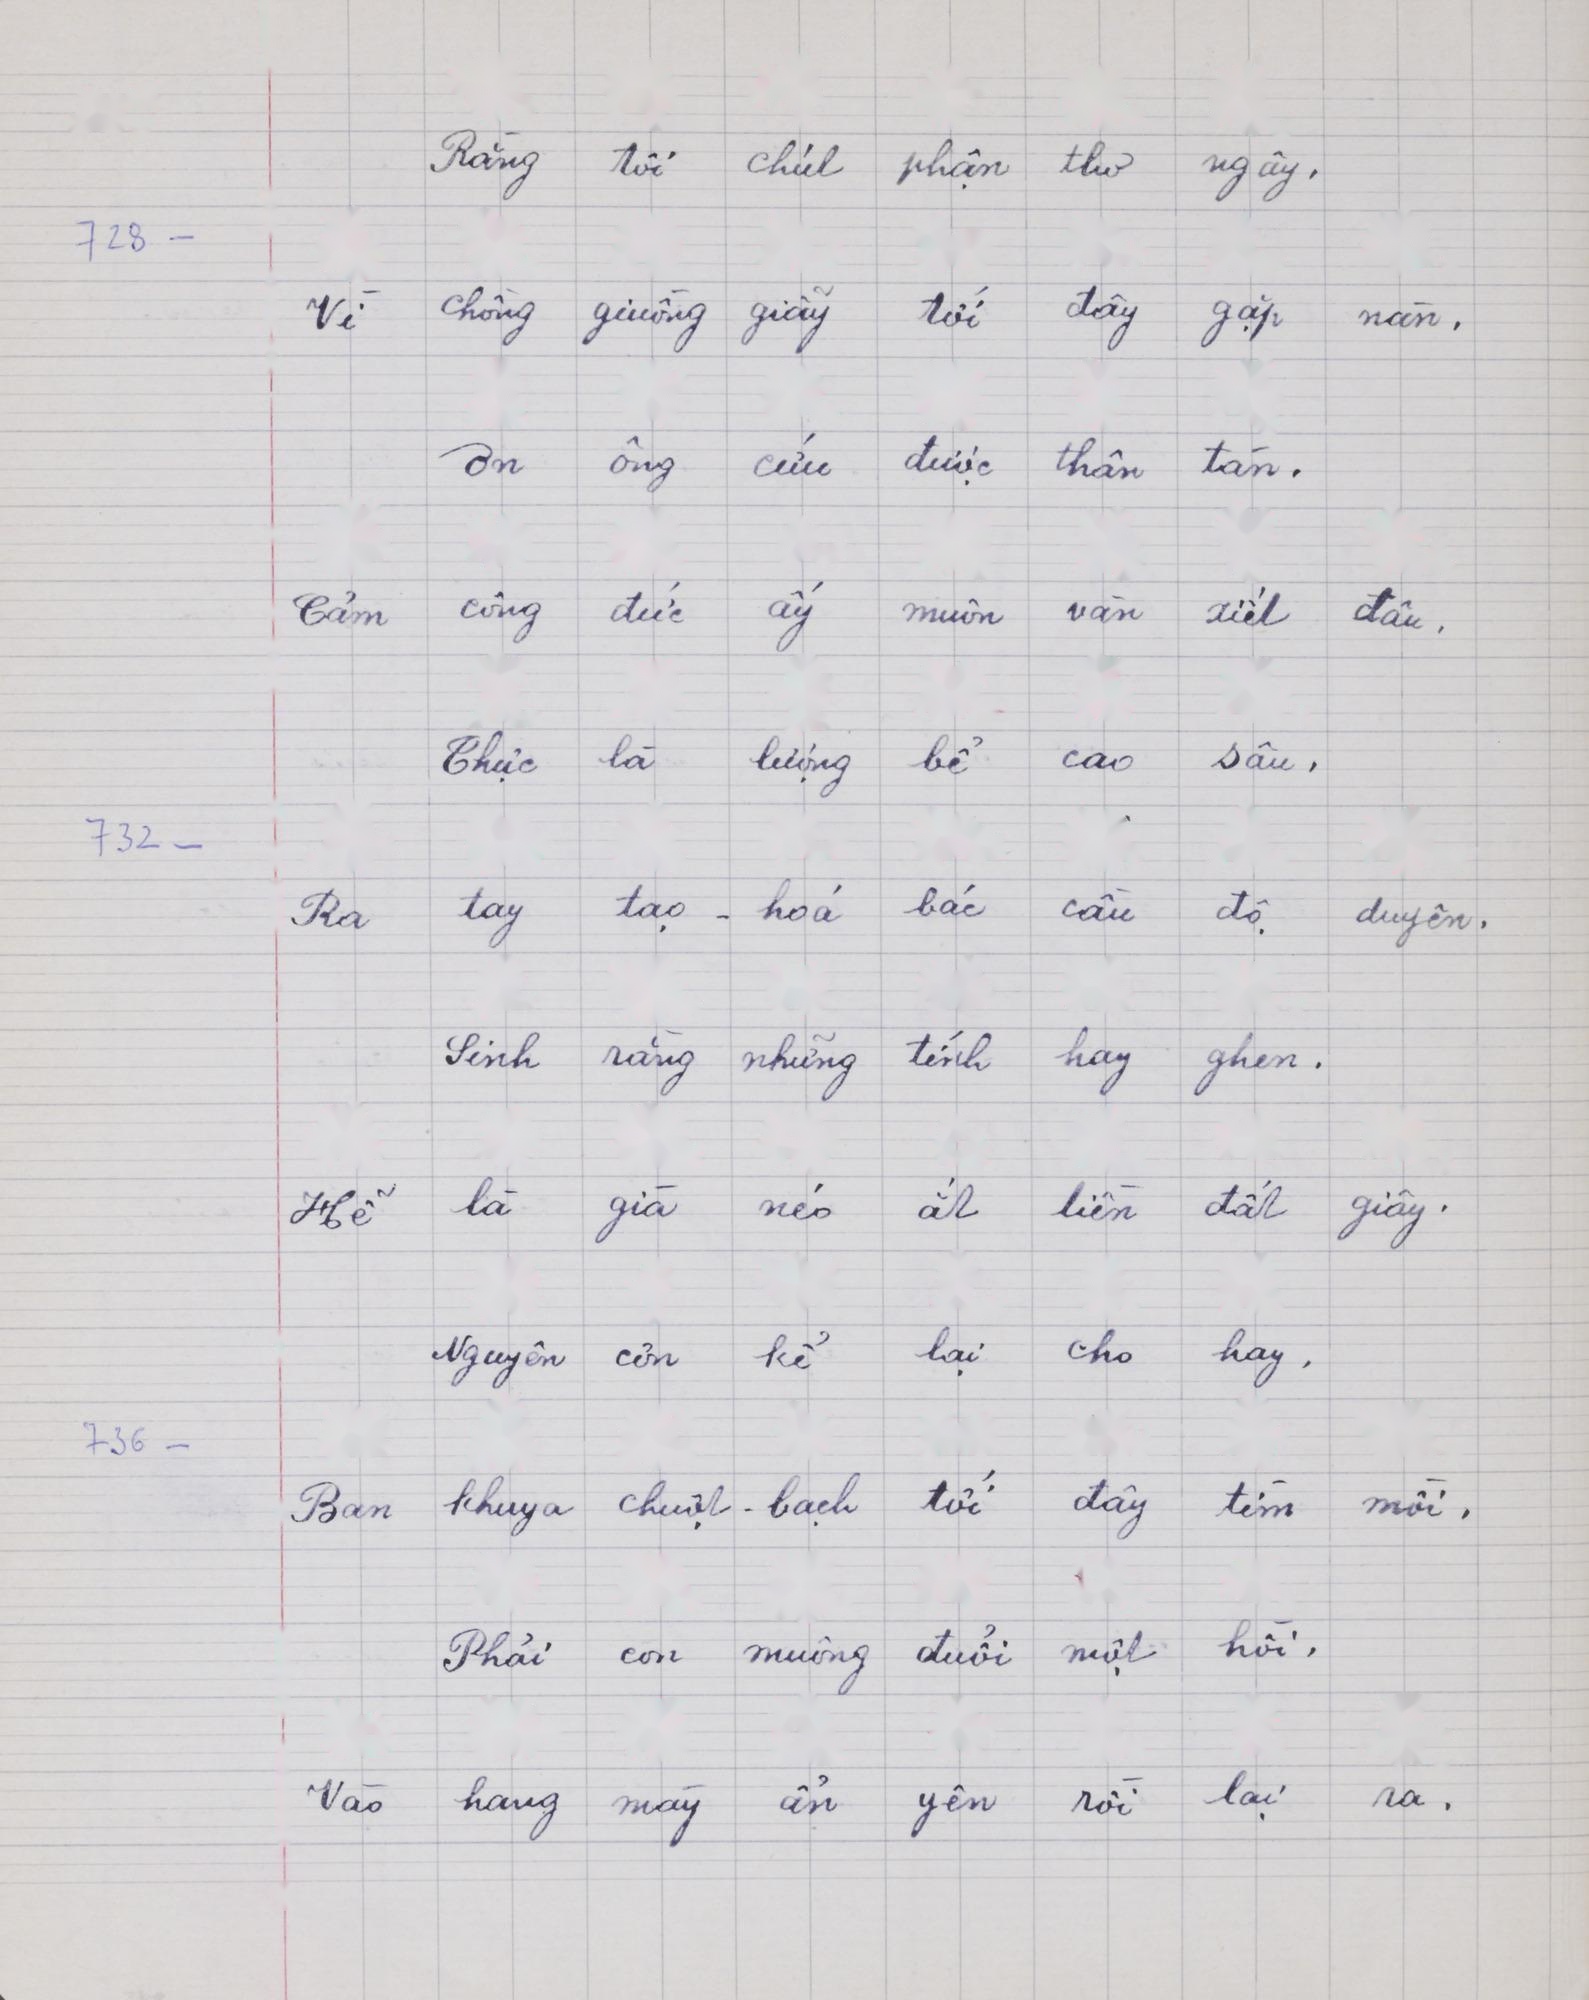 Rằng tôi chút phận thơ ngây.
728 -
Vì chồng giuồng giẫy tới đây gặp nàn.
Ơn ông cứu được thân tàn.
Cảm công đức ấy muôn vàn xiết đâu.
Thực là lượng bể cao sâu.
732 -
Ra tay tạo - hoá bác cầu độ duyên.
Sinh rằng những tính hay ghen.
Hễ là già néo ắt liền đất giây.
Nguyên cớn kể lại cho hay.
736 -
Ban khuya chuột - bạch tới đây tìm mồi.
Phải con muông đuổi một hồi.
Vào hang mày ẩn yên rồi lại ra.